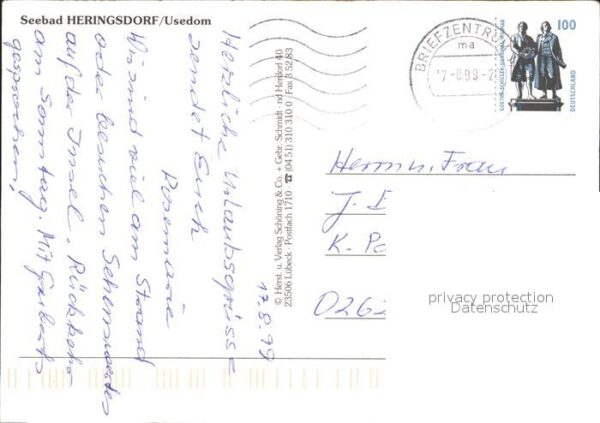 Seebad HERINGSDORF/Usedom
17.8.99
Herzliche Urlaubsgrüsse
sendet Euch
Rosemarie
Wir sind viel am Strand
oder besuchen Sehenswertes
auf der Insel. Rückkehr
am Sonntag. Mit
gesprochen,
© Herst. u. Verlag Schöning & Co. + Gebr. Schmidt · nd Herdorf 40
23506 Lübeck · Postfach 1710 · ☎ (04 51) 310 310 0 / Fax 3 52 83
BRIEFZENTRUM
ma
-8.99-2
100
GOETHE-SCHILLER-DENKMAL WEIMAR
DEUTSCHLAND
Herrn u. Frau
J.
K. Po
0262
privacy protection
Datenschutz